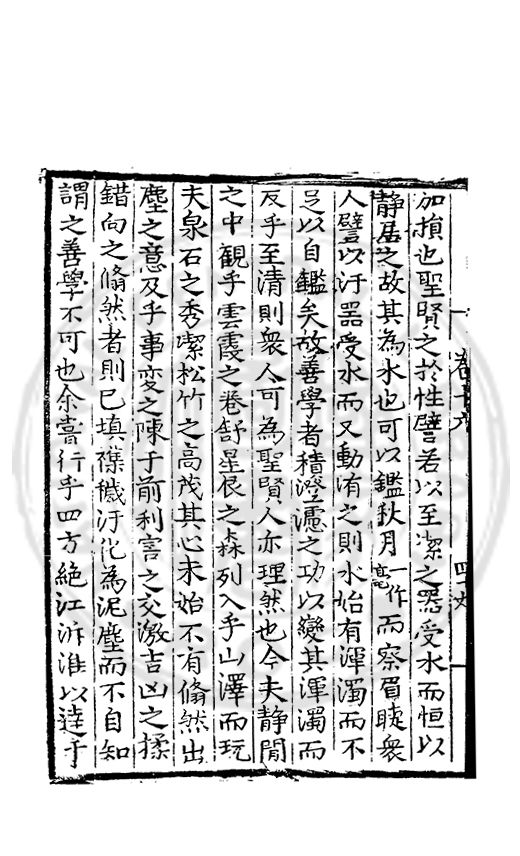 加損也聖賢之於性譬若以至潔之器受水而恒以
静居之故其為水也可以鑑秋月一作毫而察眉睫衆
人譬以汙器受水而又動洧之則水始有渾濁而不
足以自鑑矣故善學者積澄濾之功以變其渾濁而
反乎至清則衆人可為聖賢人亦理然也今夫静閒
之中觀乎雲霞之卷舒星辰之森列入乎山澤而玩
夫泉石之秀潔松竹之高茂其心未始不有翛然出
塵之意及乎事変之陳于前利害之交激吉凶之揉
錯向之翛然者則已填襍穢汙化為泥塵而不自知
謂之善學不可也余嘗行乎四方絶江泝淮以逹于